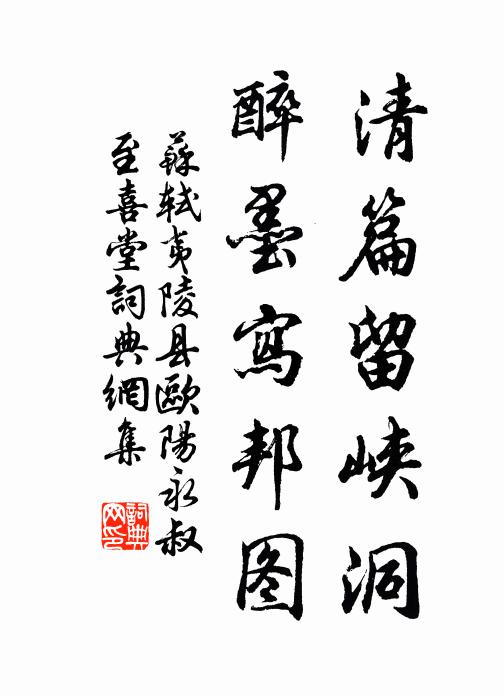 清篇留峡洞
醉墨寫邦图
蘇轼夷陵县歐陽永叔
至喜堂詞典網集
詞典网印